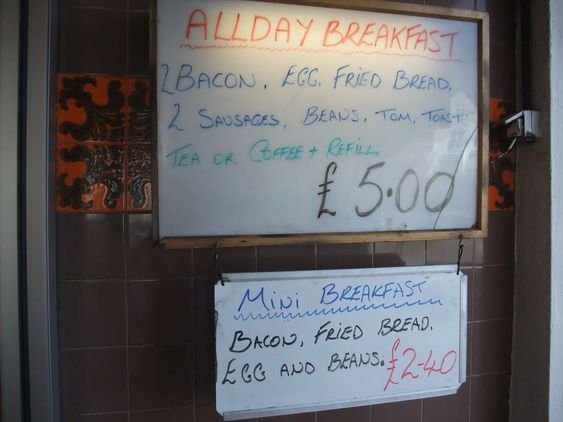 ALLDAY BREAKFAST
2 BACON, EGG, FRIED BREAD,
2 SAUSAGES, BEANS, TOM, TOAST
TEA OR COFFEE + REFILL
£5.00
MINI BREAKFAST
BACON, FRIED BREAD,
EGG AND BEANS. £2-40